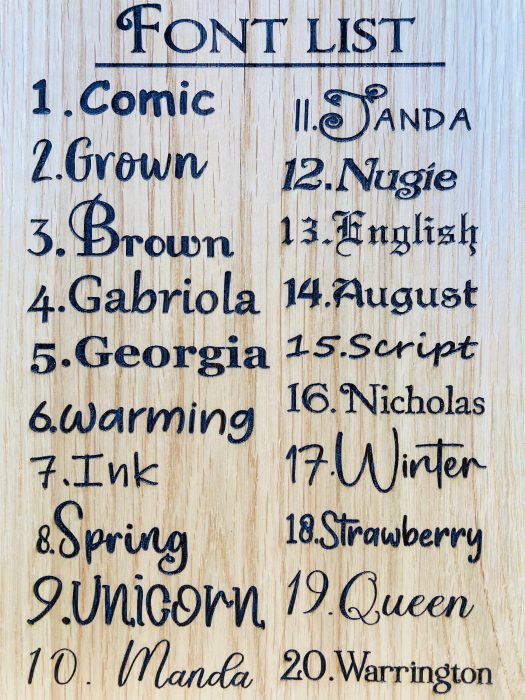 FONT LIST
1.Comic
2.Grown
3.Brown
4.Gabriola
5.Georgia
6.Warming
7.Ink
8.Spring
9.UNICORN
10. Manda
11.JANDA
12.Nugie
13.English
14.August
15.Script
16.Nicholas
17.Winter
18.Strawberry
19.Queen
20.Warrington